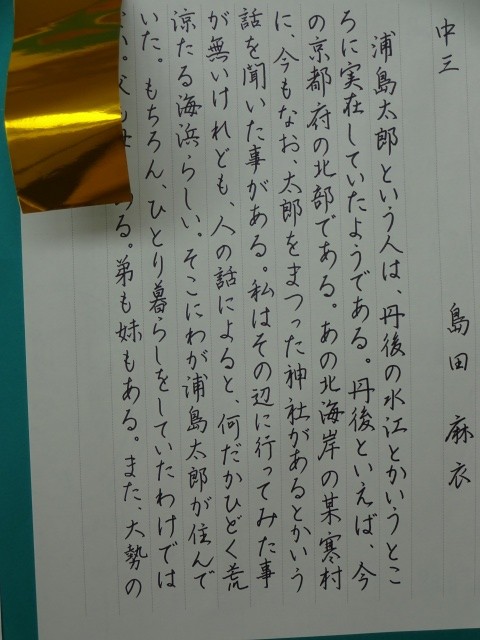 中三
島田麻衣
浦島太郎という人は、丹後の水江とかいうとこ
ろに実在していたようである。丹後といえば、今
の京都府の北部である。あの北海岸の某寒村
に、今もなお、太郎をまつった神社があるとかいう
話を聞いた事がある。私はその辺に行ってみた事
が無いけれども、人の話によると、何だかひどく荒
涼たる海浜らしい。そこにわが浦島太郎が住んで
いた。もちろん、ひとり暮らしをしていたわけでは
い。父も ある。弟も妹もある。また、大勢の